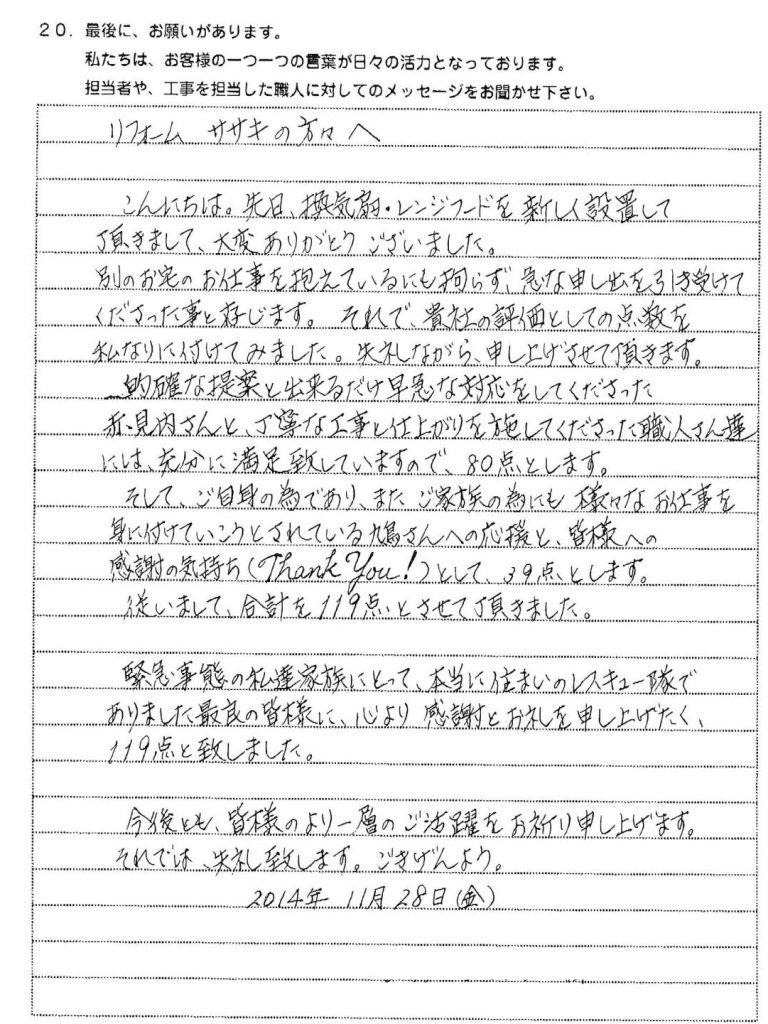 20．最後に、お願いがあります。
私たちは、お客様の一つ一つの言葉が日々の活力となっております。
担当者や、工事を担当した職人に対してのメッセージをお聞かせ下さい。
リフォーム ササキの方々へ
こんにちは。先日、換気扇・レンジフードを新しく設置して
頂きまして、大変ありがとうございました。
別のお宅のお仕事を抱えているにも拘らず、急な申し出を引き受けて
くださった事と存じます。 それで、貴社の評価としての点数を
私なりに付けてみました。失礼しながら、申し上げさせて頂きます。
的確な提案と出来るだけ早急な対応をしてくださった
赤見内さんと、丁寧な工事と仕上がりを施してくださった職人さん達
には、充分に満足致していますので、80点とします。
そして、ご自身の為であり、またご家族の為にも様々なお仕事を
身に付けていこうとされている九島さんへの応援と、皆様への
感謝の気持ち(Thank You!)として、39点とします。
従いまして、合計を119点とさせて頂きました。
緊急事態の私達家族にとって、本当に住まいのレスキュー隊で
ありました最良の皆様に、心より感謝とお礼を申し上げたく、
119点と致しました。
今後とも、皆様のより一層のご活躍をお祈り申し上げます。
それでは、失礼致します。ごきげんよう。
2014年 11月28日(金)